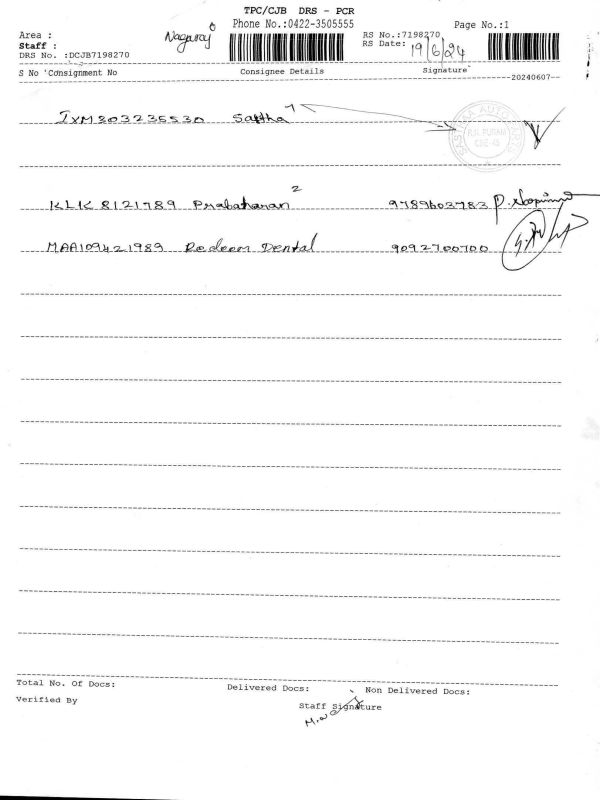 TPC/CJB DRS - PCR
Phone No.:0422-3505555 Page No.:1
Area : Nagaraj RS No.:7198270
Staff : RS Date: 19/6/24
DRS No. :DCJB7198270
S No 'Consignment No Consignee Details Signature
20240607
IXM803235530
R.S. PURAM
CBE
KLK 8121789 Prabaharan 2 9789603783
MAA109421989 Redeem Dental 9092700700
Total No. Of Docs: Delivered Docs: Non Delivered Docs:
Verified By Staff Signature